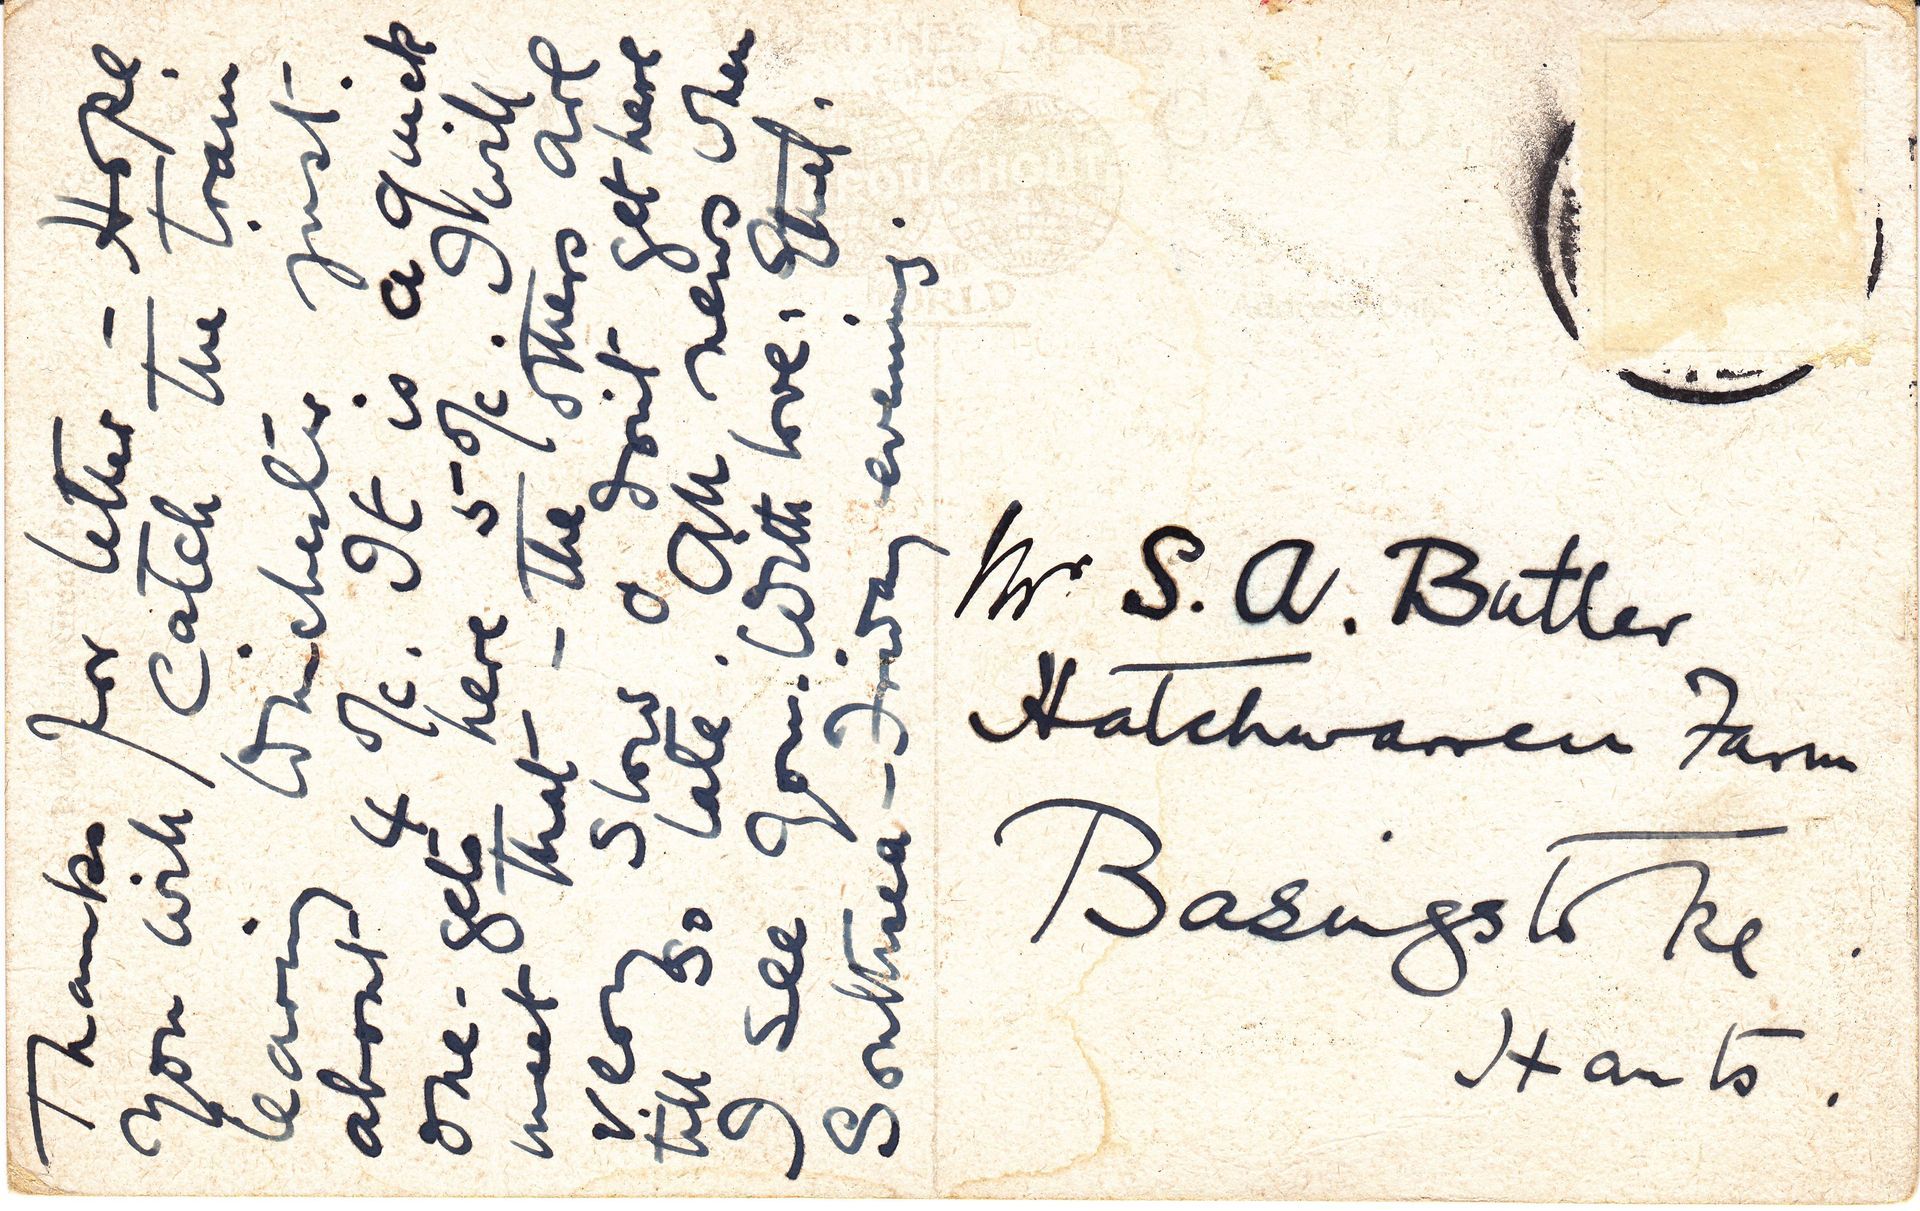 Thanks for letter - Hope
you will catch the train
leaving Winchester just
about 4 o/c. It is a quick
one - gets here 5 o/c. I will
meet that - the others are
very slow & don't get here
till so late. All news when
I see you. With love, Ethel.
Southsea - Friday evening.
Mr S. A. Butler
Hatchwarren Farm
Basingstoke
Hants.